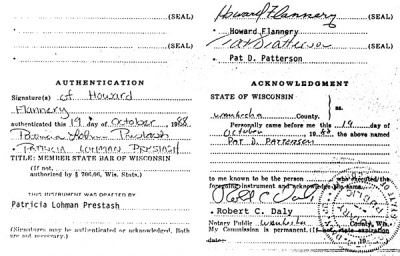 (SEAL)
(SEAL)
AUTHENTICATION
Signature(s) of Howard
Flannery
authenticated this 19 day of October, 1988
Patricia Lohman Prestash
PATRICIA LOHMAN PRESTASH
TITLE: MEMBER STATE BAR OF WISCONSIN
(If not,
authorized by § 706.06, Wis. Stat.)
THIS INSTRUMENT WAS DRAFTED BY
Patricia Lohman Prestash
(Signatures may be authenticated or acknowledged. Both
are not necessary.)
Howard Flannery (SEAL)
Howard Flannery
Pat D. Patterson (SEAL)
Pat D. Patterson
ACKNOWLEDGMENT
STATE OF WISCONSIN
ss.
County.
Personally came before me this 19 day of
October 19 the above named
PAT D. PATTERSON
to me known to be the person who executed the
foregoing instrument and acknowledge the same.
Robert C. Daly
Notary Public County, Wis.
My Commission is permanent. (If not, state expiration
date: 19